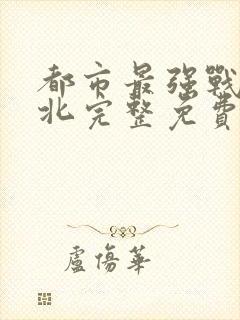 都市最强戰
北完整免費
盧傷華